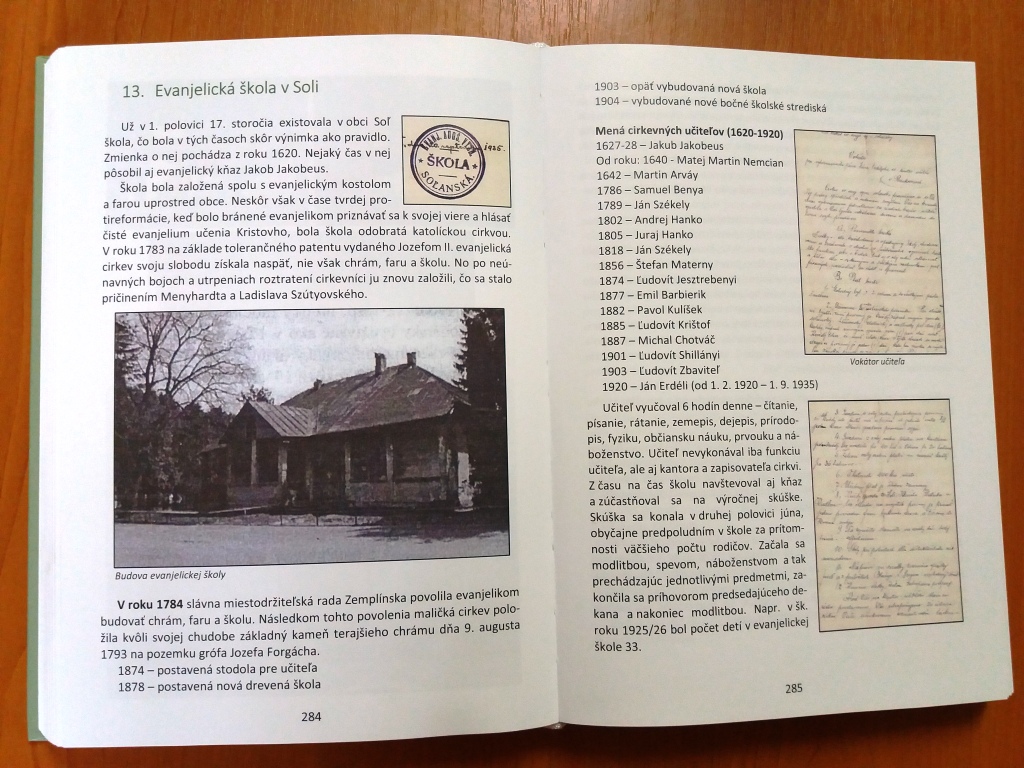 13. Evanjelická škola v Soli
Už v 1. polovici 17. storočia existovala v obci Soľ
škola, čo bola v tých časoch skôr výnimka ako pravidlo.
Zmienka o nej pochádza z roku 1620. Nejaký čas v nej
pôsobil aj evanjelický kňaz Jakob Jakobeus.
ŠKOLA
SOĽANSKÁ
1926.
Škola bola založená spolu s evanjelickým kostolom
a farou uprostred obce. Neskôr však v čase tvrdej pro-
tireformácie, keď bolo bránené evanjelikom priznávať sa k svojej viere a hlásať
čisté evanjelium učenia Kristovho, bola škola odobratá katolíckou cirkvou.
V roku 1783 na základe tolerančného patentu vydaného Jozefom II. evanjelická
cirkev svoju slobodu získala naspäť, nie však chrám, faru a školu. No po neú-
navných bojoch a utrpeniach roztratení cirkevníci ju znovu založili, čo sa stalo
pričinením Menyhardta a Ladislava Szútyovského.
Budova evanjelickej školy
V roku 1784 slávna miestodržiteľská rada Zemplínska povolila evanjelikom
budovať chrám, faru a školu. Následkom tohto povolenia maličká cirkev polo-
žila kvôli svojej chudobe základný kameň terajšieho chrámu dňa 9. augusta
1793 na pozemku grófa Jozefa Forgácha.
1874 – postavená stodola pre učiteľa
1878 – postavená nová drevená škola
284
1903 – opäť vybudovaná nová škola
1904 – vybudované nové bočné školské strediská
Mená cirkevných učiteľov (1620-1920)
1627-28 – Jakub Jakobeus
Od roku: 1640 - Matej Martin Nemcian
1642 – Martin Arváy
1786 – Samuel Benya
1789 – Ján Székely
1802 – Andrej Hanko
1805 – Juraj Hanko
1818 – Ján Székely
1856 – Štefan Materny
1874 – Ľudovít Jesztrebenyi
1877 – Emil Barbierik
1882 – Pavol Kulíšek
1885 – Ľudovít Krištof
1887 – Michal Chotváč
1901 – Ľudovít Shillányi
1903 – Ľudovít Zbaviteľ
1920 – Ján Erdéli (od 1. 2. 1920 – 1. 9. 1935)
Vokátor učiteľa
Učiteľ vyučoval 6 hodín denne – čítanie,
písanie, rátanie, zemepis, dejepis, prírodo-
pis, fyziku, občiansku náuku, prvouku a ná-
boženstvo. Učiteľ nevykonával iba funkciu
učiteľa, ale aj kantora a zapisovateľa cirkvi.
Z času na čas školu navštevoval aj kňaz
a zúčastňoval sa na výročnej skúške.
Skúška sa konala v druhej polovici júna,
obyčajne predpoludním v škole za prítom-
nosti väčšieho počtu rodičov. Začala sa
modlitbou, spevom, náboženstvom a tak
prechádzajúc jednotlivými predmetmi, za-
končila sa príhovorom predsedajúceho de-
kana a nakoniec modlitbou. Napr. v šk.
roku 1925/26 bol počet detí v evanjelickej
škole 33.
285